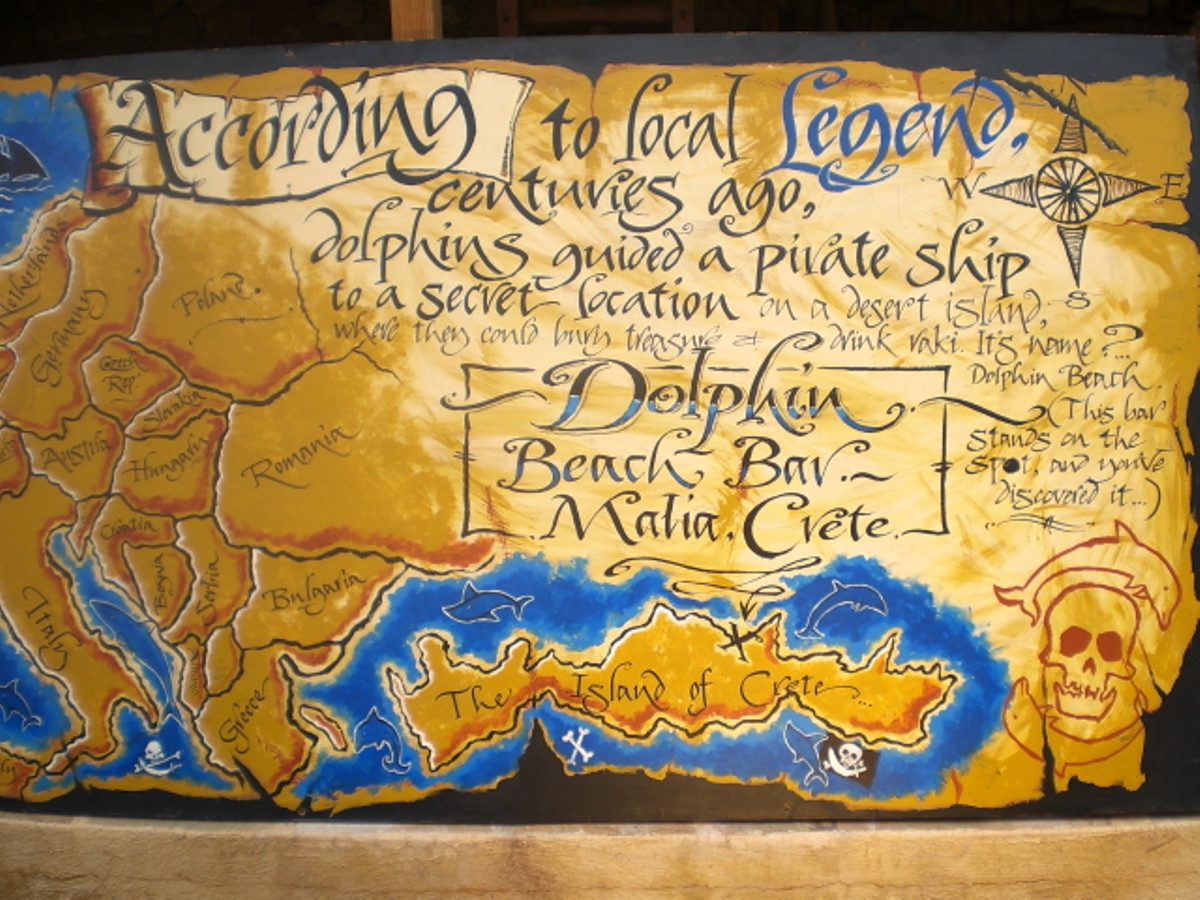 According to local Legend,
centuries ago,
dolphins guided a pirate ship
to a secret location on a desert island,
where they could bury treasure & drink raki. It's name?...
Dolphin Beach.
(This bar
stands on the
spot, and you've
discovered it...)
Dolphin
Beach Bar.~
Malia, Crete.
W
E
S
Netherlands
Germany
Poland.
Czech
Rep.
Slovakia
Austria
Hungary
Romania
Croatia
Bosnia
Serbia
Bulgaria
Italy
Greece
The Island of Crete...